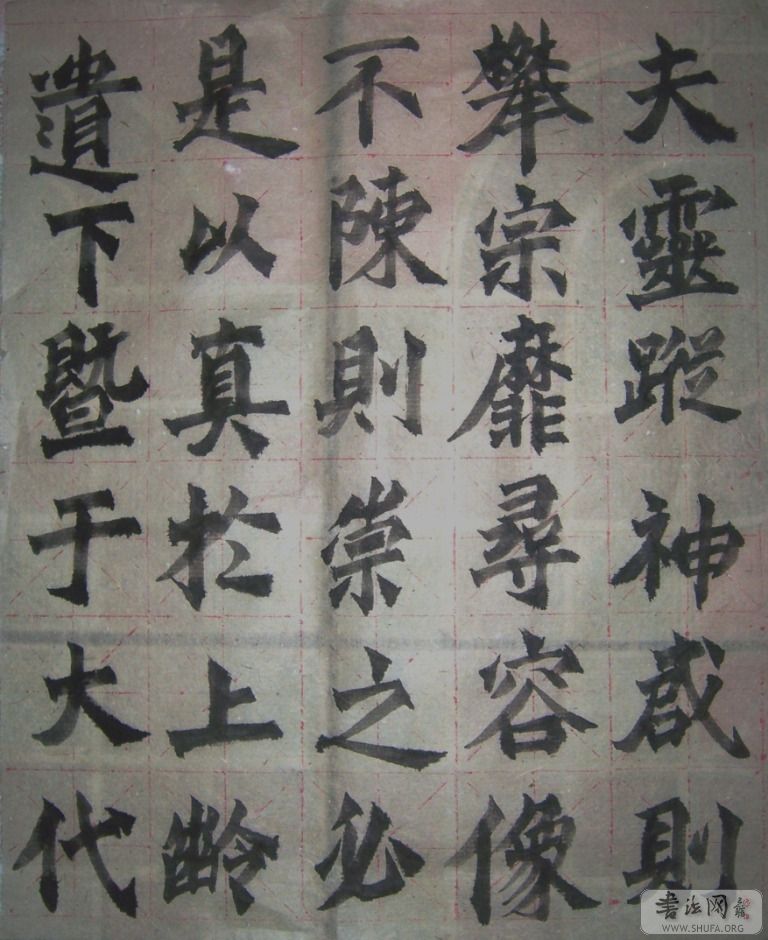 夫靈蹤神啟則
攀宗靡尋容像
不陳則崇之必
是以真於上齡
遺下暨于大代
書法网
WWW.SHUFA.ORG